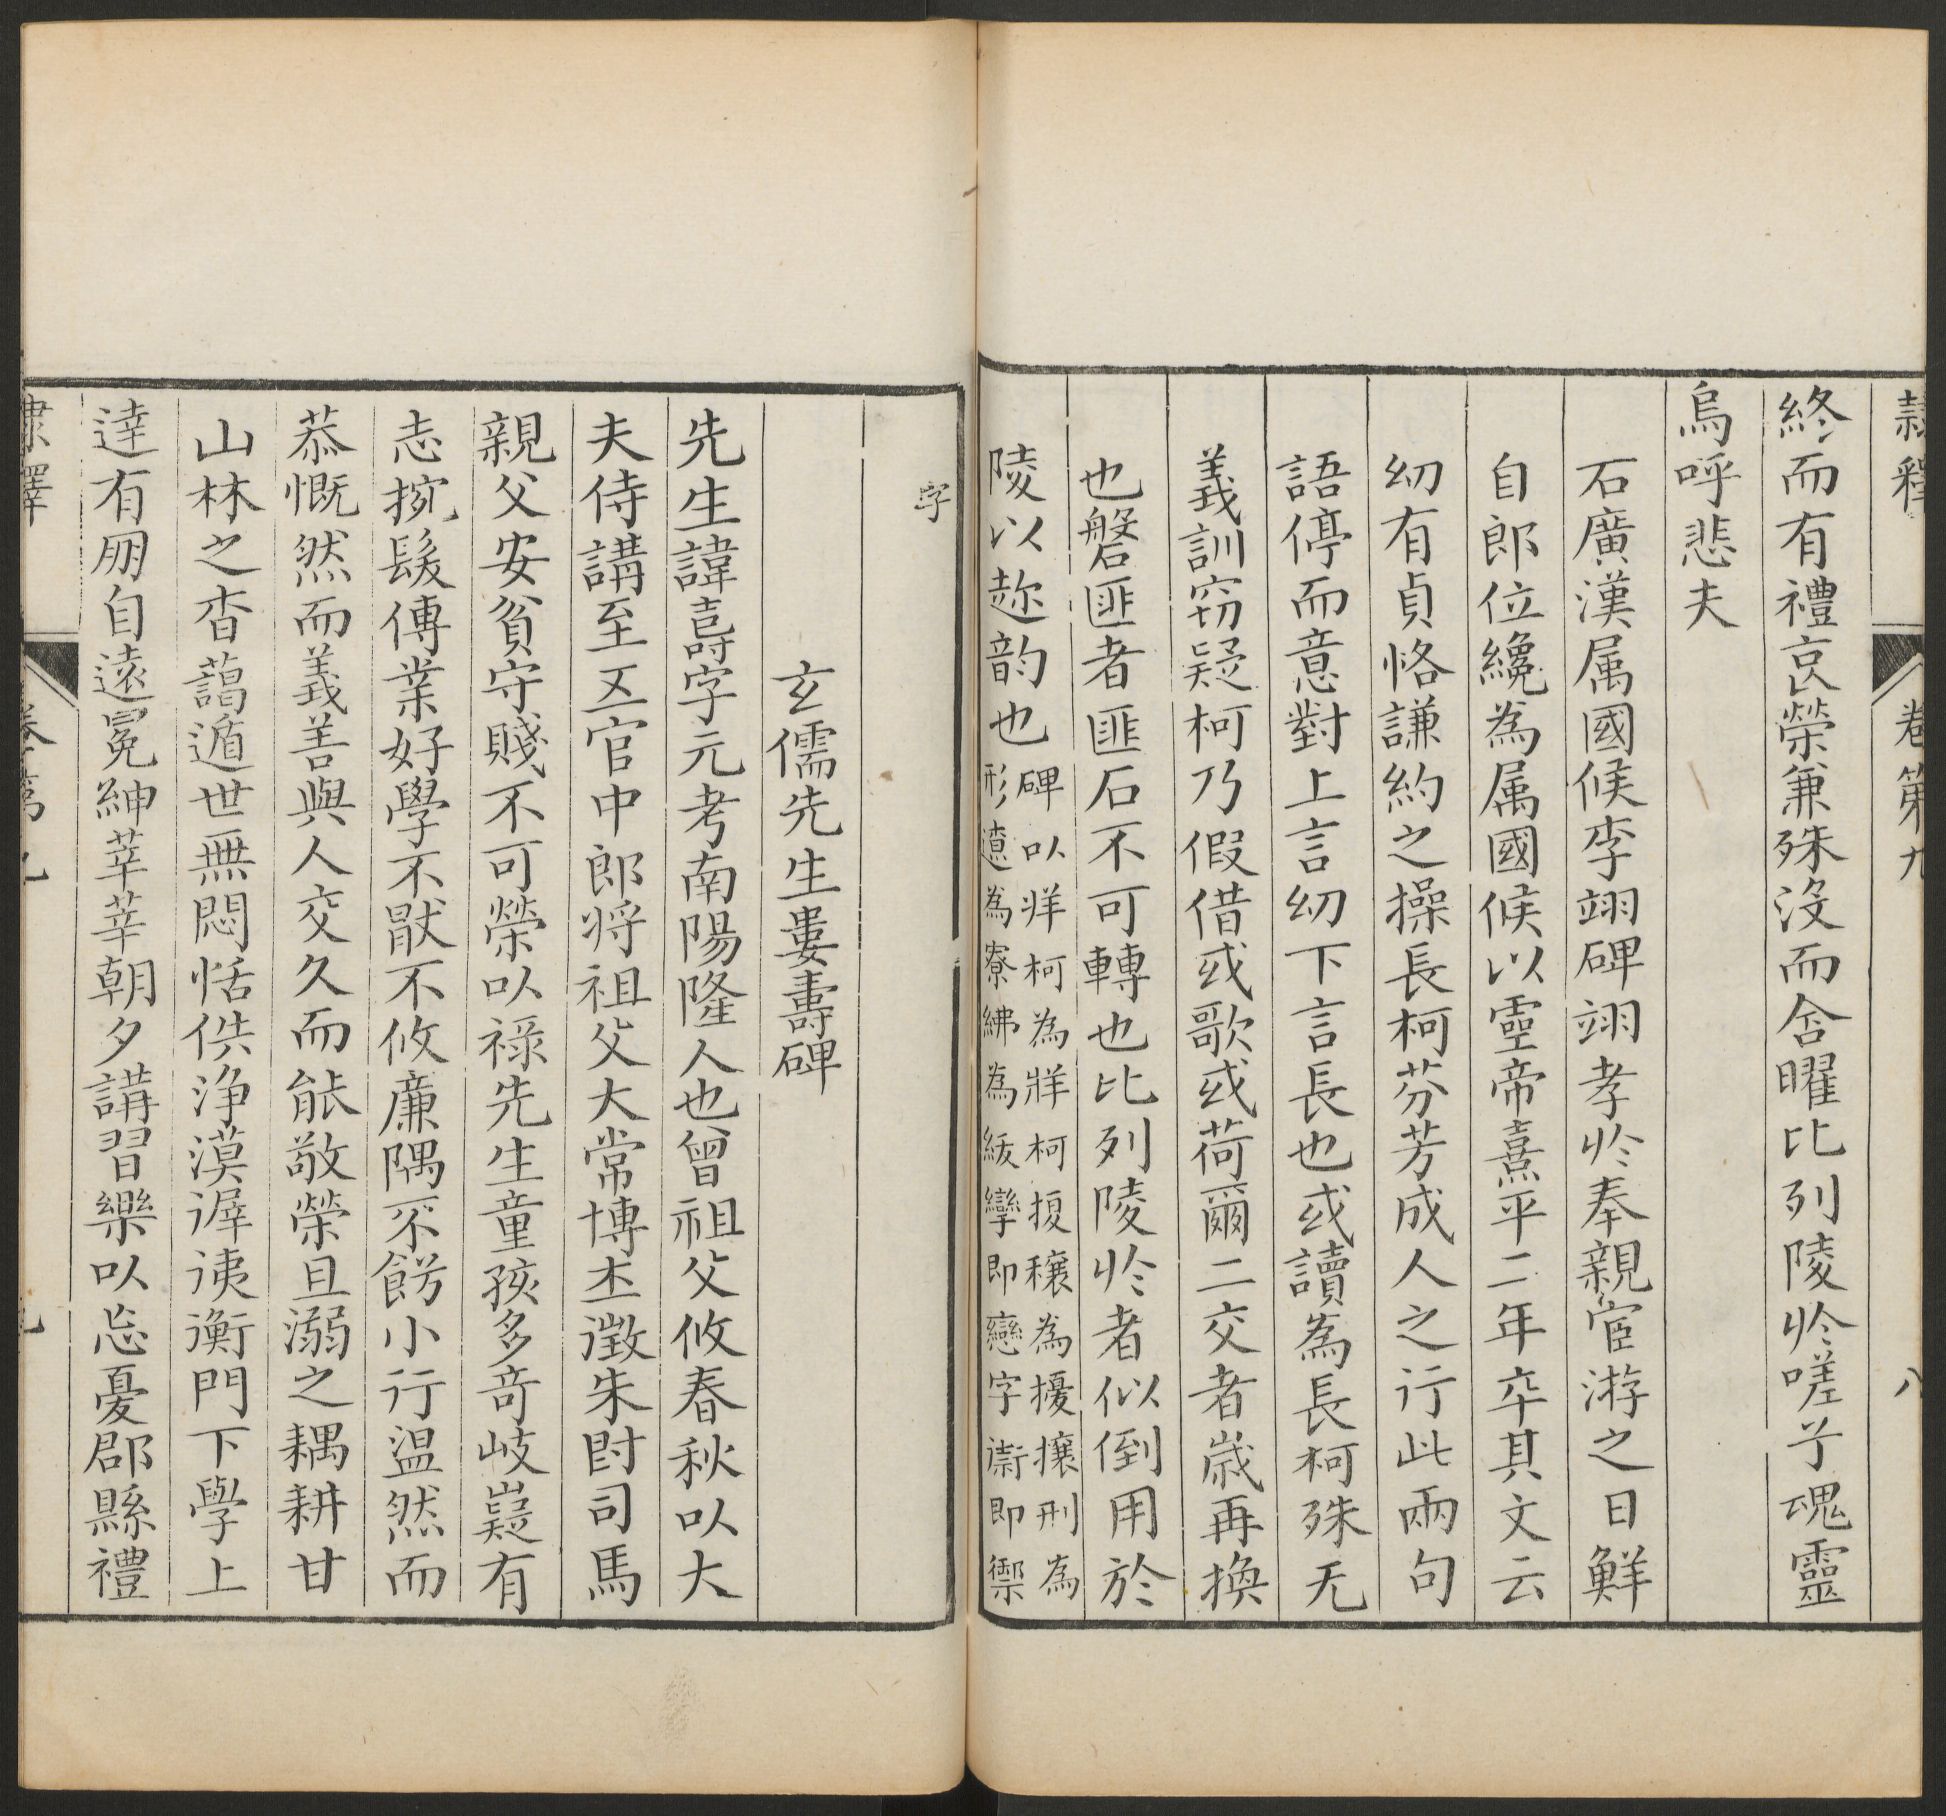 隷釋 卷第九 八
終而有禮哀榮兼殊沒而含曜比列陵於嗟兮魂靈
烏呼悲夫
石廣漢属國候李翊碑翊孝於奉親宦游之日鮮
自郎位纔為属國候以靈帝熹平二年卒其文云
幼有貞恪謙約之操長柯芬芳成人之行此兩句
語停而意對上言幼下言長也或讀為長柯殊无
義訓窃疑柯乃假借或歌或荷爾二交者嵗再換
也磐匪者匪石不可轉也比列陵於者似倒用於
陵以趂韵也碑以牂柯為牂柯擾穰為擾攘刑為
形遼為寮紼為紱孿即戀字禦即禦
字
玄儒先生婁壽碑
先生諱壽字元考南陽隆人也曾祖父攸春秋以大
夫侍講至五官中郎将祖父大常博士徵朱爵司馬
親父安貧守賤不可榮以禄先生童孩多奇岐嶷有
志捥髮傳業好學不猒不攸廉隅不飭小行温然而
恭慨然而義善與人交久而能敬榮且溺之耦耕甘
山林之杳藹遁世無悶恬佚浄漠徲𢓡衡門下學上
達有朋自遠冕紳莘莘朝夕講習樂以忘憂郡縣禮
隷釋 卷第九 九